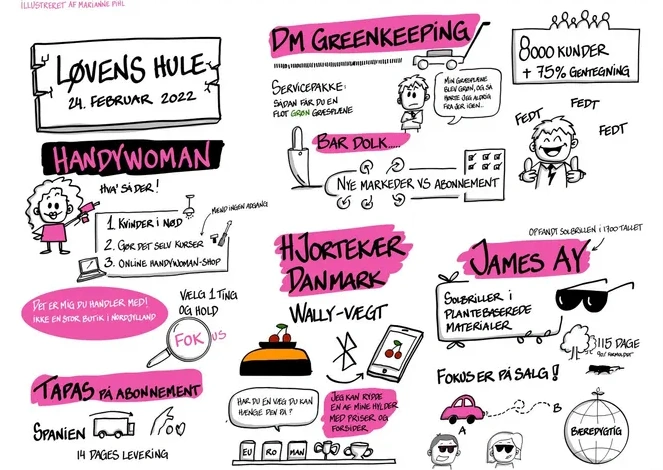 ILLUSTRERET AF MARIANNE PIHL
LØVENS HULE
24. FEBRUAR 2022
HANDYWOMAN
HVA' SÅ DER!
1. KVINDER I NØD
2. GØR DET SELV KURSER
3. ONLINE HANDYWOMAN-SHOP
MÆND INGEN ADGANG
DET ER MIG DU HANDLER MED!
IKKE EN STOR BUTIK I NORDJYLLAND
VÆLG 1 TING
OG HOLD
FOKUS
TAPAS PÅ ABONNEMENT
SPANIEN
14 DAGES LEVERING
DM GREENKEEPING
SERVICEPAKKE:
SÅDAN FÅR DU EN
FLOT GRØN GRÆSPLÆNE
MIN GRÆSPLÆNE
BLEV GRØN, OG SÅ
HØRTE JEG ALDRIG
FRA JER IGEN...
8000 KUNDER
+ 75% GENTEGNING
FEDT
FEDT
FEDT
BAR DOLK.....
NYE MARKEDER VS ABONNEMENT
HJORTEKÆR
DANMARK
WALLY-VÆGT
HAR DU EN VÆG DU KAN
HÆNGE DEN PÅ?
JEG KAN RYDDE
EN AF MINE HYLDER
MED PRISER OG
FORSIDER.
EU RO MAN
JAMES AY
OPFANDT SOLBRILLEN I 1700 TALLET
SOLBRILLER I
PLANTEBASEREDE
MATERIALER
115 DAGE
FOKUS ER PÅ SALG!
A
B
BÆREDYGTIG